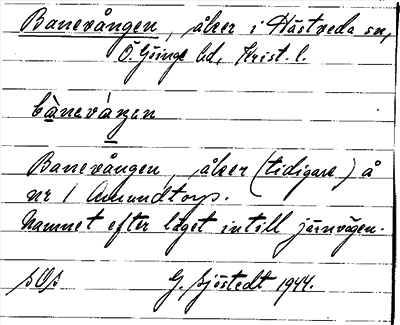 Banevången, åker i Hästveda sn,
Ö. Göinge hd, Krist. l.
bànevàŋen
Banevången, åker (tidigare) å
nr 1 Amundtorp.
Namnet efter läget intill järnvägen.
G. Sjöstedt 1944.